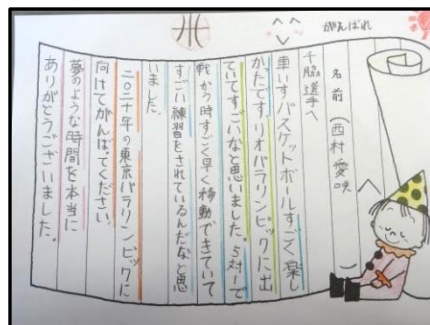 がんばれ
名前(西村愛咲)
千脇選手へ
車いすバスケットボールすごく楽し
かったです。リオパラリンピックに出
ていてすごいなと思いました。5対1で
戦かう時すごく早く移動できていて
すごい練習をされているんだなと思
いました。
二〇二十年の東京パラリンピックに
向けてがんばってください。
夢のような時間を本当に
ありがとうございました。